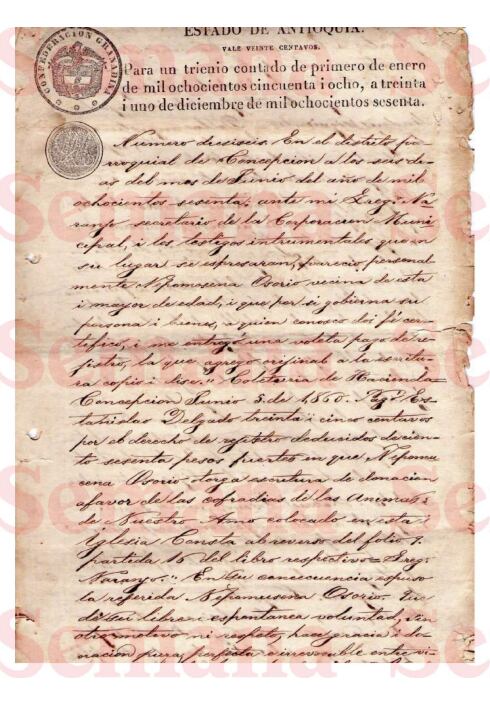 ESTADO DE ANTIOQUIA.
VALE VEINTE CENTAVOS.
CONFEDERACION GRANADINA
Para un trienio contado de primero de enero
de mil ochocientos cincuenta i ocho, a treinta
i uno de diciembre de mil ochocientos sesenta.
Numero dieseiseis. En el distrito pa-
rroquial de Concepcion a los seis di-
as del mes de Junio del año de mil
ochocientos sesenta; ante mi Greg.º Na-
ranjo secretario de la Corporacion Muni-
cipal, i los testigos intrumentales que en
su lugar se espresaran, parecio personal-
mente Nepomosena Osorio vecina de esta
i mayor de edad, i que por si gobierna su
persona i bienes, a quien conosco doi fé cer-
tifico, i me entregó una voleta pago de re-
jistro, la que agrego orijinal a la escritu-
ra copio i dise." Coleteria de Hacienda
Concepcion Junio 5 de 1860. Pagó Es-
tanislao Delgado treinta i cinco centavos
por el derecho de rejistro deducidos de cien-
to sesenta pesos fuertes en que Nepomu-
cena Osorio otorga escritura de donacion
afavor de las cofradias de las Animas i
de Nuestro Amo colocado en esta
Yglesia Consta al reverso del folio 7
partida 15 del libro respectivo. Greg.º
Naranjo." En su concecuencia espuso
la referida Nepomusena Osorio. Que
de su libre i espontanea voluntad, sin
otro motivo ni respeto, hace gracia i do-
nacion pura, perfecta e irrevocable entre vi-
Semana